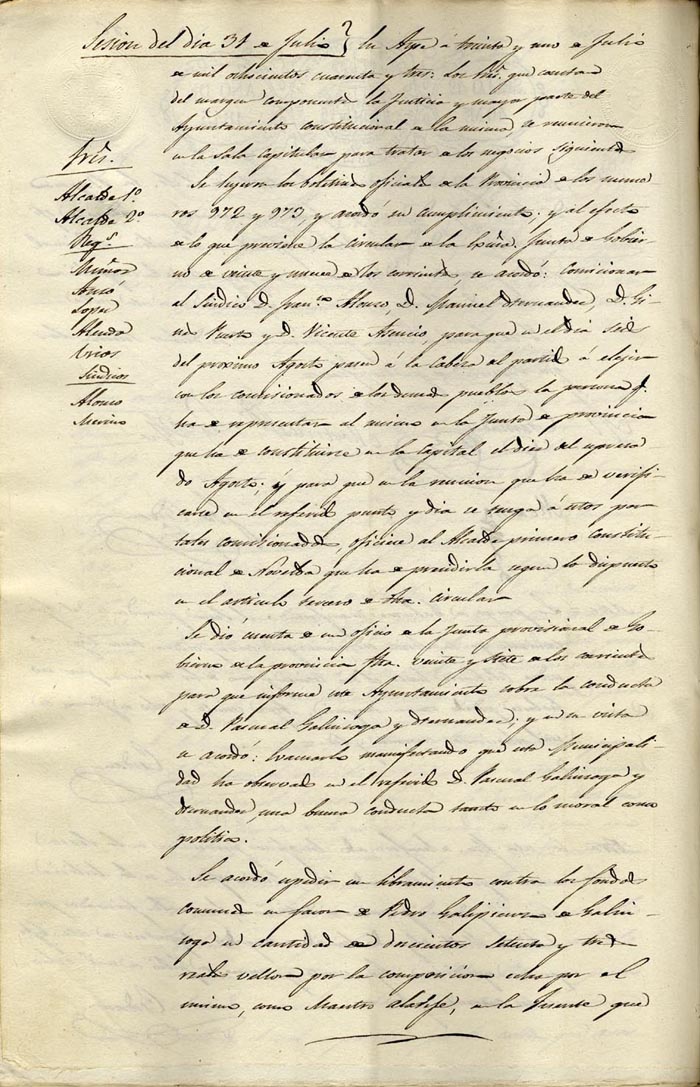 Sesion del dia 31 de Julio
En Aspe á treinta y uno de Julio
de mil ochocientos cuarenta y tres: los Sres. que constan
del margen componente la Justicia y mayor parte del
Ayuntamiento constitucional de la misma, se reunieron
en la Sala Capitular para tratar de los negocios siguientes
Sres.
Alcalde 1º
Alcalde 2º
Regs.
Muñoz
Lopez
Sindicos
Alonso
Merino
Se leyeron los boletines oficiales de la Provincia de los nume
ros 972 y 973, y acordó su cumplimiento; y al efecto
de lo que previene la circular de la Exma. Junta de Gobier
no de veinte y nueve de los corrientes se acordó: Comisionar
al Sindico D. Franco. Alonso, D. Manuel Hernandez, D. Gi
nes Puerto y D. Vicente Asencio, para que en el dia seis
del proximo Agosto pasen á la Cabeza del partido á elejir
con los comisionados de los demas pueblos la persona q.
ha de representar al mismo en la Junta de provincia
que ha de constituirse en la Capital el diez del espresa
do Agosto; y para que en la reunion que ha de verifi
carse en el referido punto y dia se tenga á estos por
tales comisionados, oficiese al Alcalde primero constitu-
cional de Novelda que ha de presidirla segun lo dispuesto
en el articulo tercero de dha. circular
Se dió cuenta de un oficio de la Junta provisional de Go-
bierno de la provincia fha. veinte y siete de los corrientes
para que informe este Ayuntamiento sobre la conducta
de D. Pascual Galinsoga y Hernandez; y en su vista
se acordó: Evacuarlo manifestando que esta Municipali-
dad ha observado en el referido D. Pascual Galinsoga y
Hernandez, una buena conducta tanto en lo moral como
politica.
Se acordó espedir un libramiento contra los fondos
comunes en favor de Pedro de Galin-
soga en cantidad de doscientos setenta y tres
reales vellon por la composicion echa por el
mismo, como Maestro alarife, en la Fuente que